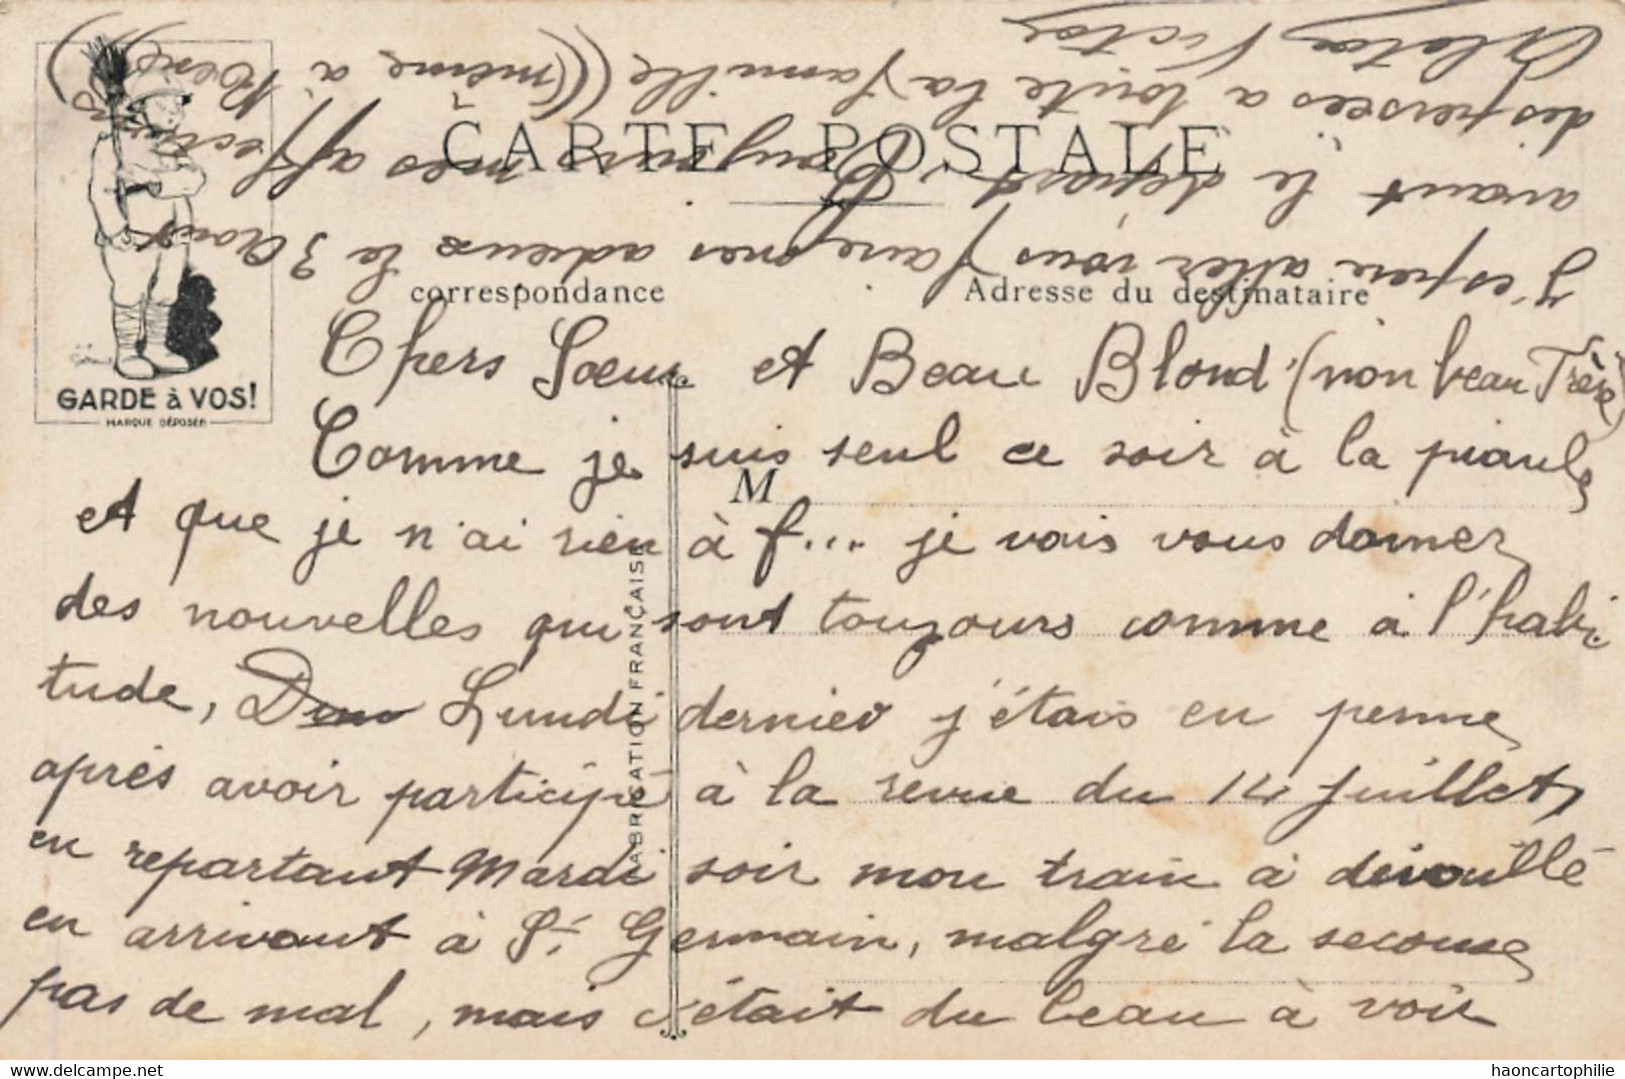 CARTE POSTALE
correspondance
Adresse du destinataire
GARDE à VOS!
MARQUE DÉPOSÉE
M
FABRICATION FRANÇAISE
Chers Sœur et Beau Blond (non beau Frère)
Comme je suis seul ce soir à la piaule
et que je n'ai rien à f... je vais vous donner
des nouvelles qui sont toujours comme à l'habi
tude, Lundi dernier j'étais en perme
après avoir participé à la revue du 14 Juillet,
en repartant Mardi soir mon train a déraillé
en arrivant à St Germain, malgré la secousse
pas de mal, mais c'était du beau à voir
J'espère aller vous faire mes adieux le 3 Aout
avant le départ. Toujours mes affect
des pensées a toute la famille (même à René)
Victor
haoncartophilie